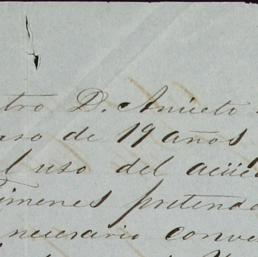 tro D. Aniceto
aso de 19 años
l uso del
imenes pretende
necesario conve